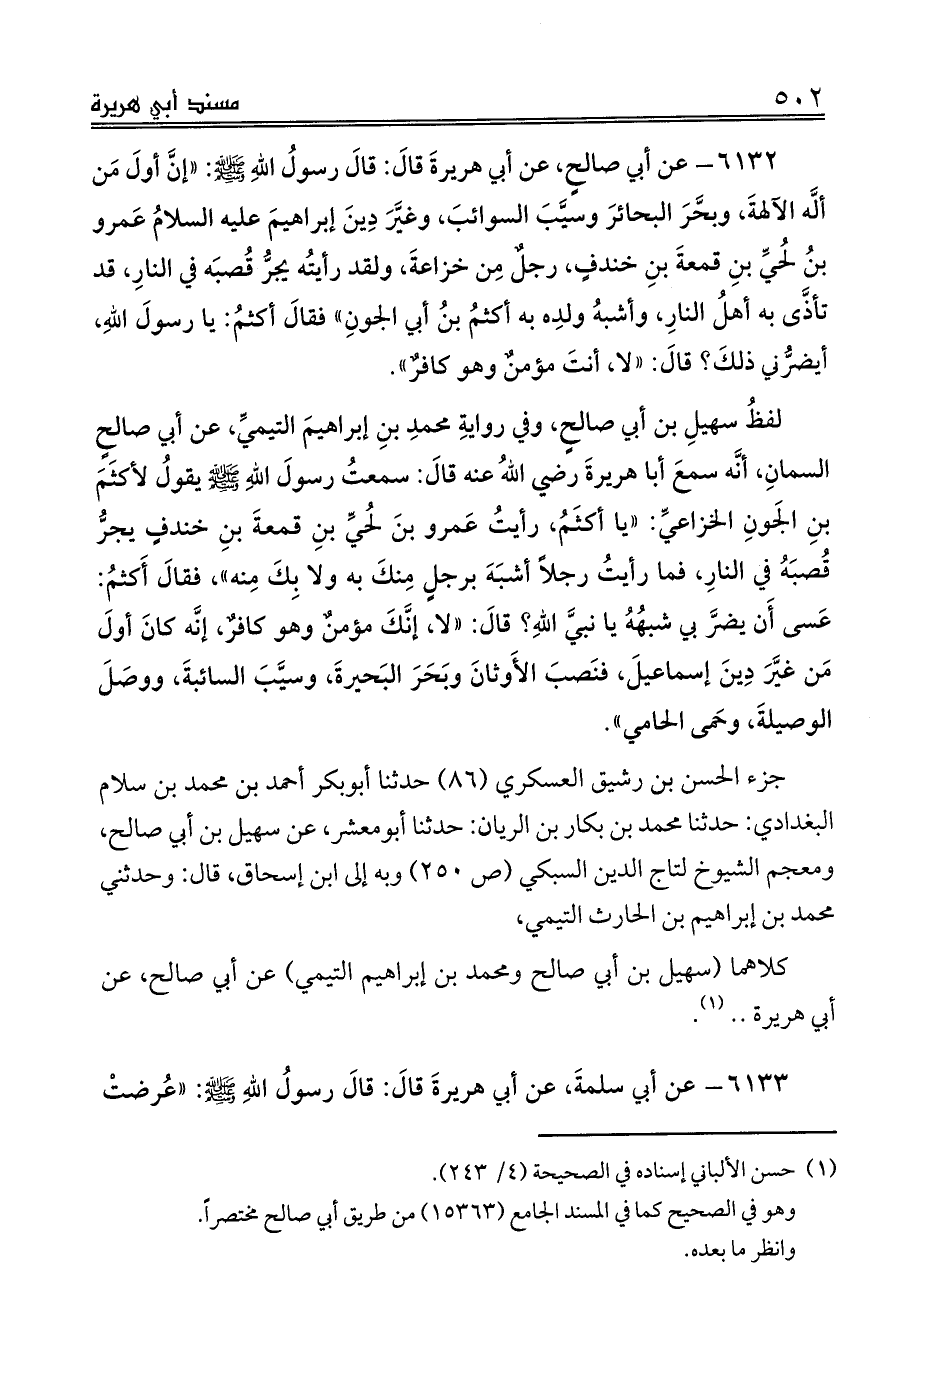 ٥٠٢ مسند أبي هريرة
٦١٣٢ – عن أبي صالحٍ، عن أبي هريرةَ قالَ: قالَ رسولُ اللهِ ﷺ: «إنَّ أولَ مَن
ألَّه الآلهةَ، وبحَّرَ البحائرَ وسيَّبَ السوائبَ، وغيَّرَ دِينَ إبراهيمَ عليه السلامُ عَمرو
بنُ لُحيِّ بنِ قمعةَ بنِ خندفٍ، رجلٌ مِن خزاعةَ، ولقد رأيتُه يجرُّ قُصبَه في النارِ، قد
تأذَّى به أهلُ النارِ، وأشبهُ ولدِه به أكثمُ بنُ أبي الجونِ» فقالَ أكثمُ: يا رسولَ اللهِ،
أيضرُّني ذلكَ؟ قالَ: «لا، أنتَ مؤمنٌ وهو كافرٌ».
لفظُ سهيلِ بن أبي صالحٍ، وفي روايةِ محمدِ بنِ إبراهيمَ التيميِّ، عن أبي صالحٍ
السمانِ، أنَّه سمعَ أبا هريرةَ رضي اللهُ عنه قالَ: سمعتُ رسولَ اللهِ ﷺ يقولُ لأكثَمَ
بنِ الجَونِ الخزاعيِّ: «يا أكثمُ، رأيتُ عَمرو بنَ لُحيِّ بنِ قمعةَ بنِ خندفٍ يجرُّ
قُصبَهُ في النارِ، فما رأيتُ رجلاً أشبَهَ برجلٍ مِنكَ به ولا بِكَ مِنه»، فقالَ أَكثمُ:
عَسى أَن يضرَّ بي شبهُهُ يا نبيَّ اللهِ؟ قالَ: «لا، إنَّكَ مؤمنٌ وهو كافرٌ، إنَّه كانَ أولَ
مَن غيَّرَ دِينَ إسماعيلَ، فنَصبَ الأَوثانَ وبَحَرَ البَحيرةَ، وسيَّبَ السائبةَ، ووصَلَ
الوصيلةَ، وحَمى الحامي».
جزء الحسن بن رشيق العسكري (٨٦) حدثنا أبوبكر أحمد بن محمد بن سلام
البغدادي: حدثنا محمد بن بكار بن الريان: حدثنا أبومعشر، عن سهيل بن أبي صالح،
ومعجم الشيوخ لتاج الدين السبكي (ص ٢٥٠) وبه إلى ابن إسحاق، قال: وحدثني
محمد بن إبراهيم بن الحارث التيمي،
كلاهما (سهيل بن أبي صالح ومحمد بن إبراهيم التيمي) عن أبي صالح، عن
أبي هريرة .. (١).
٦١٣٣ – عن أبي سلمةَ، عن أبي هريرةَ قالَ: قالَ رسولُ اللهِ ﷺ: «عُرضتْ
(١) حسن الألباني إسناده في الصحيحة (٤/ ٢٤٣).
وهو في الصحيح كما في المسند الجامع (١٥٣٦٣) من طريق أبي صالح مختصراً.
وانظر ما بعده.